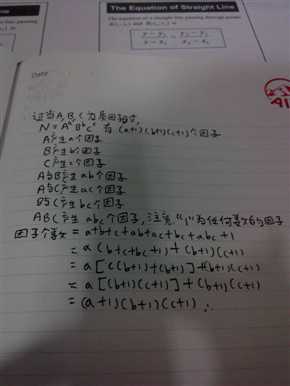 The Equation of Straight Line
The equation of a straight line passing through points
Date
过当A,B,C为质因子时,
N=AᵃBᵇCᶜ 有(a+1)(b+1)(c+1)个因子
A产生a个因子
B产生b个因子
C产生c个因子
A与B产生ab个因子
A与C产生ac个因子
B与C产生bc个因子
ABC产生abc个因子,注意"1"为任何整数的因子
因子个数=a+b+c+ab+ac+bc+abc+1
=a(b+c+bc+1)+(b+1)(c+1)
=a[c(b+1)+(b+1)]+(b+1)(c+1)
=a[(b+1)(c+1)]+(b+1)(c+1)
=(a+1)(b+1)(c+1)